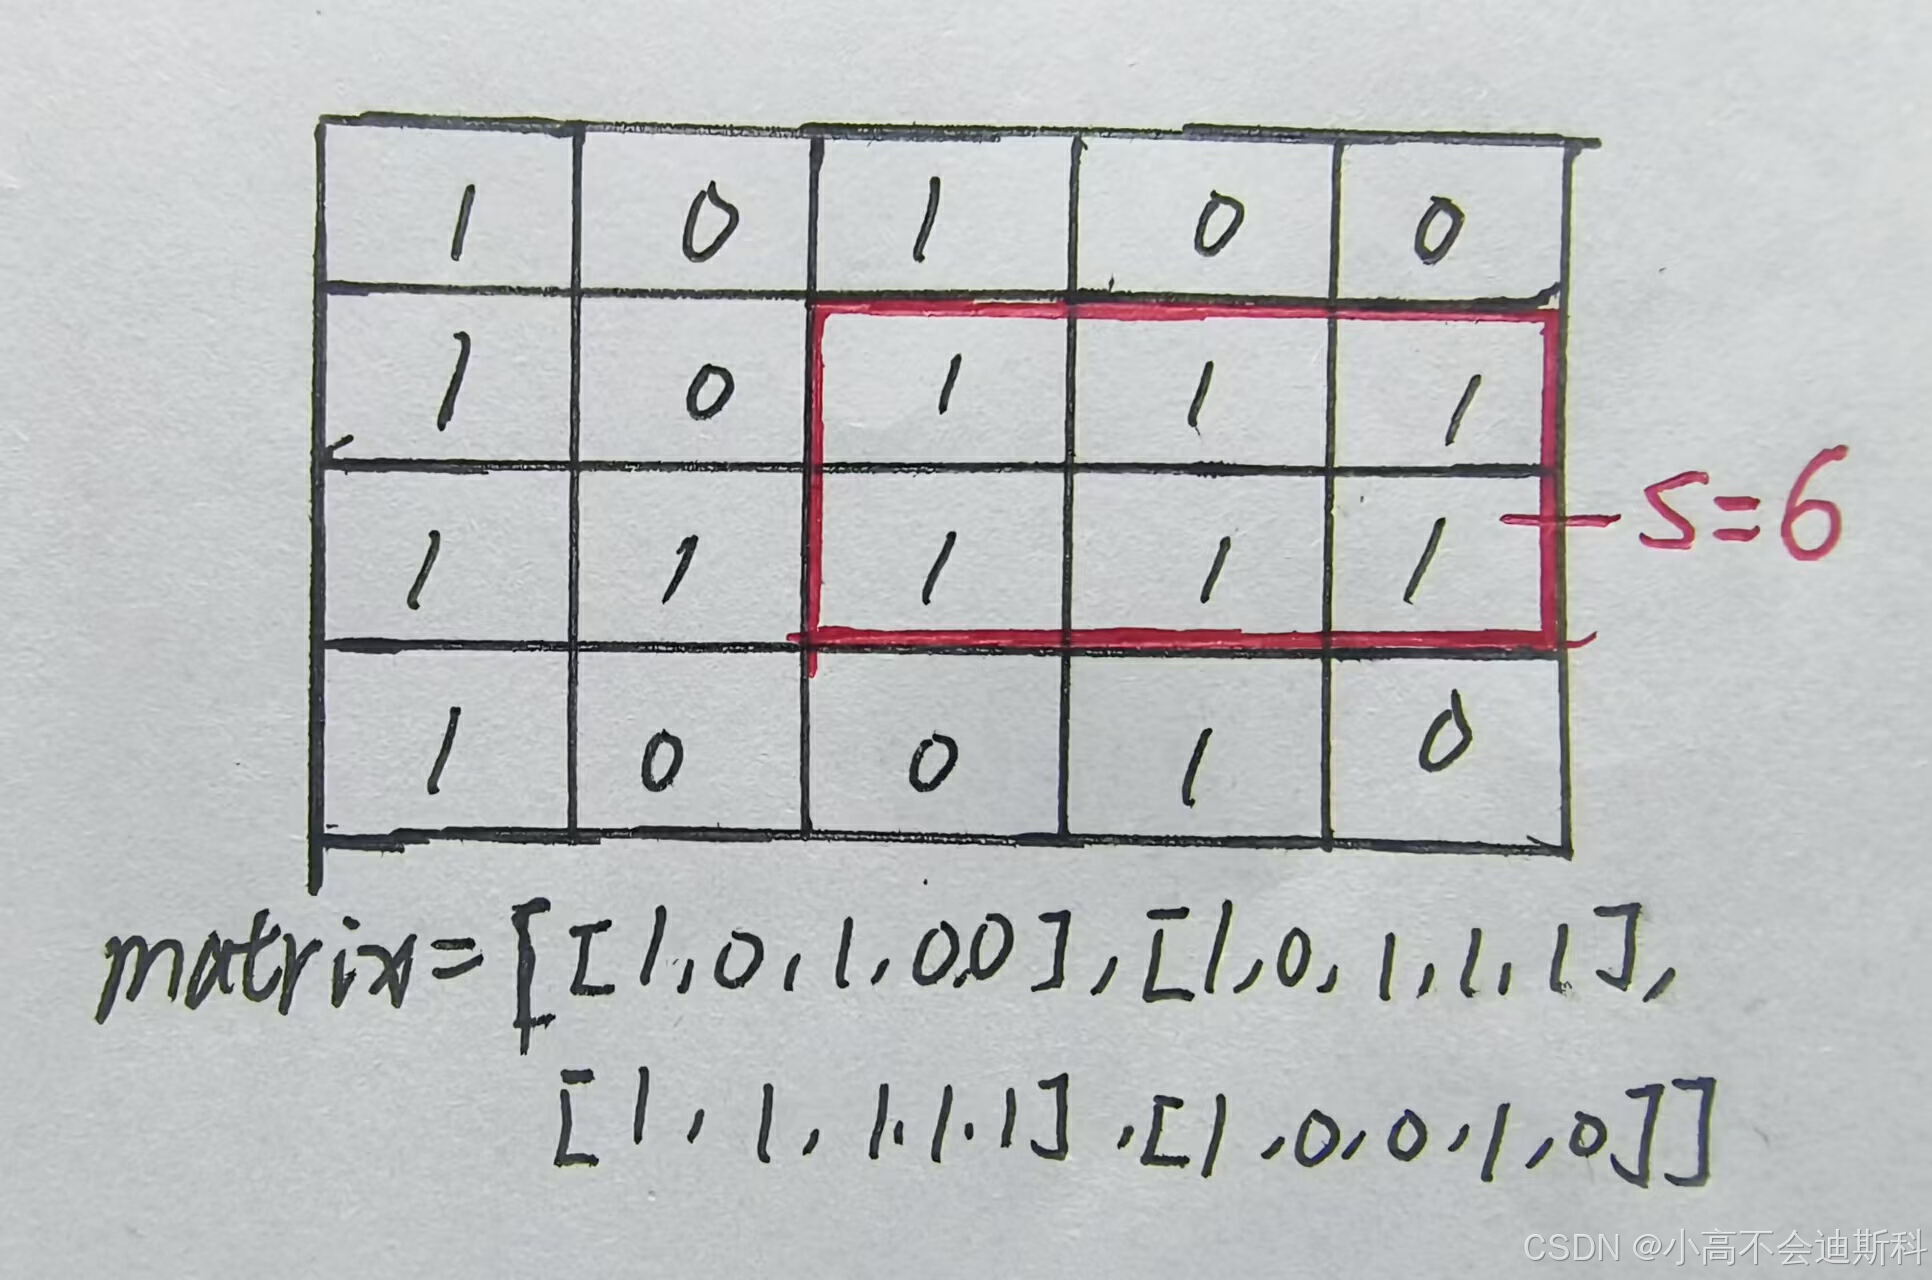 1 0 1 0 0
1 0 1 1 1
S=6
1 1 1 1 1
1 0 0 1 0
matrix=[[1,0,1,0,0],[1,0,1,1,1],
[1,1,1,1,1],[1,0,0,1,0]]
CSDN @小高不会迪斯科